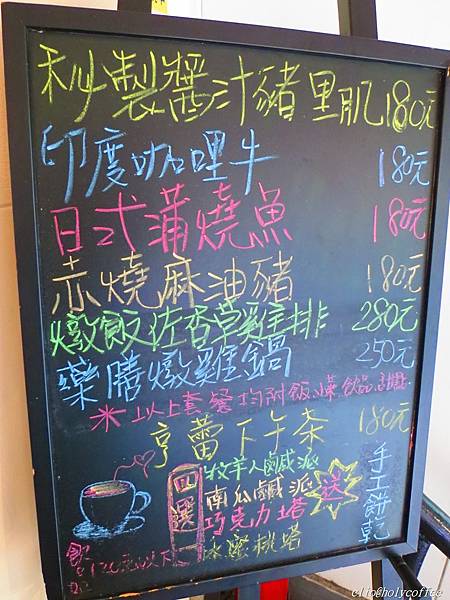 秘製醬汁豬里肌180元
印度咖哩牛 180元
日式蒲燒魚 180元
赤燒麻油豬 180元
燉飯佐香草雞排 280元
藥膳燉雞鍋 250元
*以上套餐均附飯、湯、飲品、甜點
亨蕾下午茶 180元
四選一
牧羊人鹹派
南瓜鹹派
巧克力塔
水蜜桃塔
送
手工餅乾
飲品120元以下
cljo@holycoffee